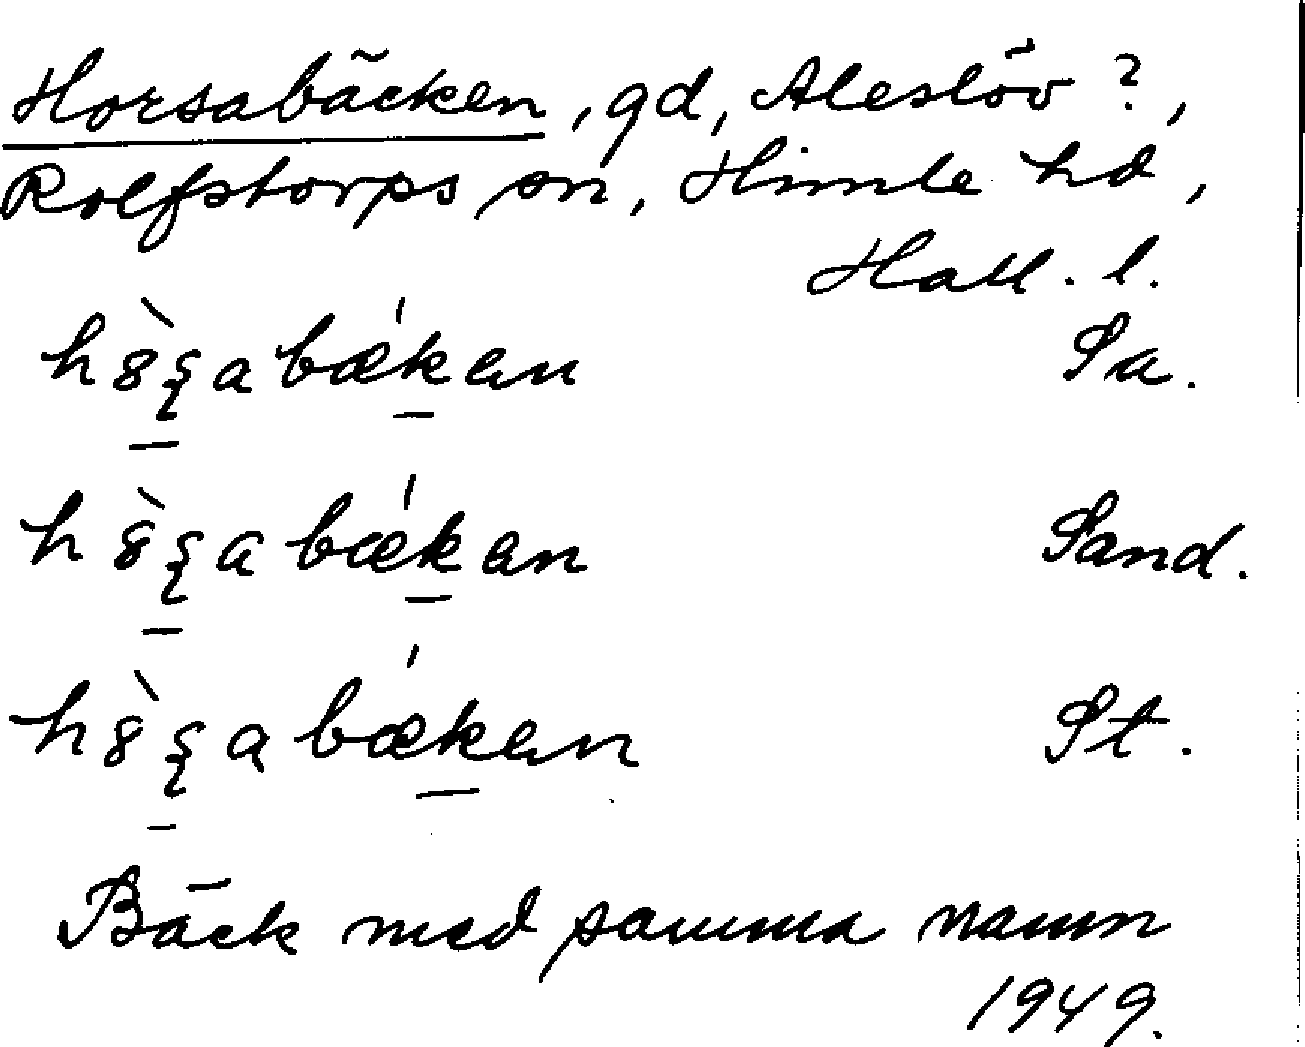 Horsabäcken, gd, Aleslöv?,
Rolfstorps sn, Himle hd,
Hall. l.
h8̀ʂabǽkan Sa.
h8̀ʂabǽkan Sand.
h8̀ʂabǽkan St.
Bäck med samma namn
1949.